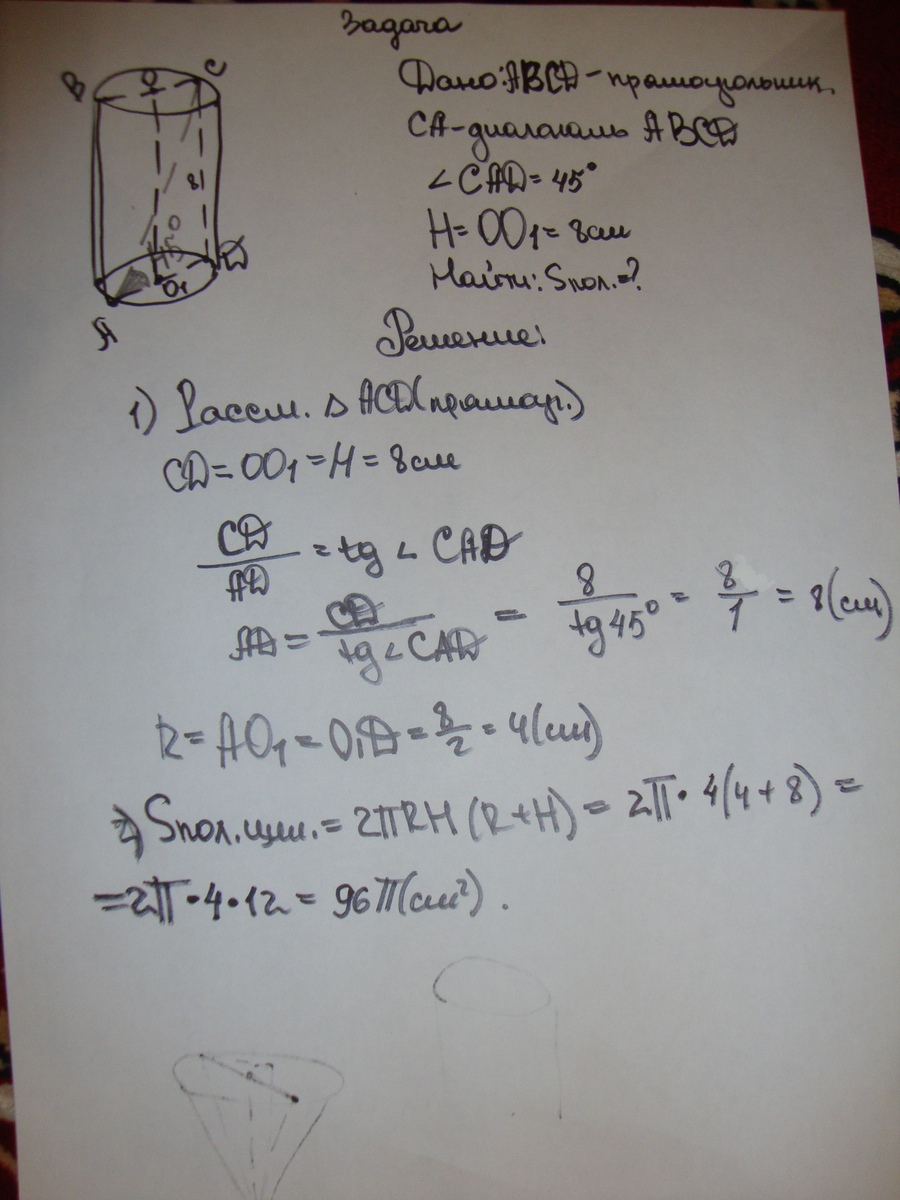 Задача
B O C
8
45°
O1 D
A
Дано: ABCD - прямоугольник.
CA - диагональ ABCD
∠CAD = 45°
H = OO1 = 8см
Найти: Sпол. = ?
Решение:
1) Рассм. Δ ACD (прямоуг.)
CD = OO1 = H = 8см
CD/AD = tg ∠ CAD
AD = CD/tg∠CAD = 8/tg45° = 8/1 = 8 (см)
R = AO1 = O1D = 8/2 = 4 (см)
2) Sпол.цил. = 2πRH (R+H) = 2π · 4(4+8) =
= 2π · 4 · 12 = 96π (см²).